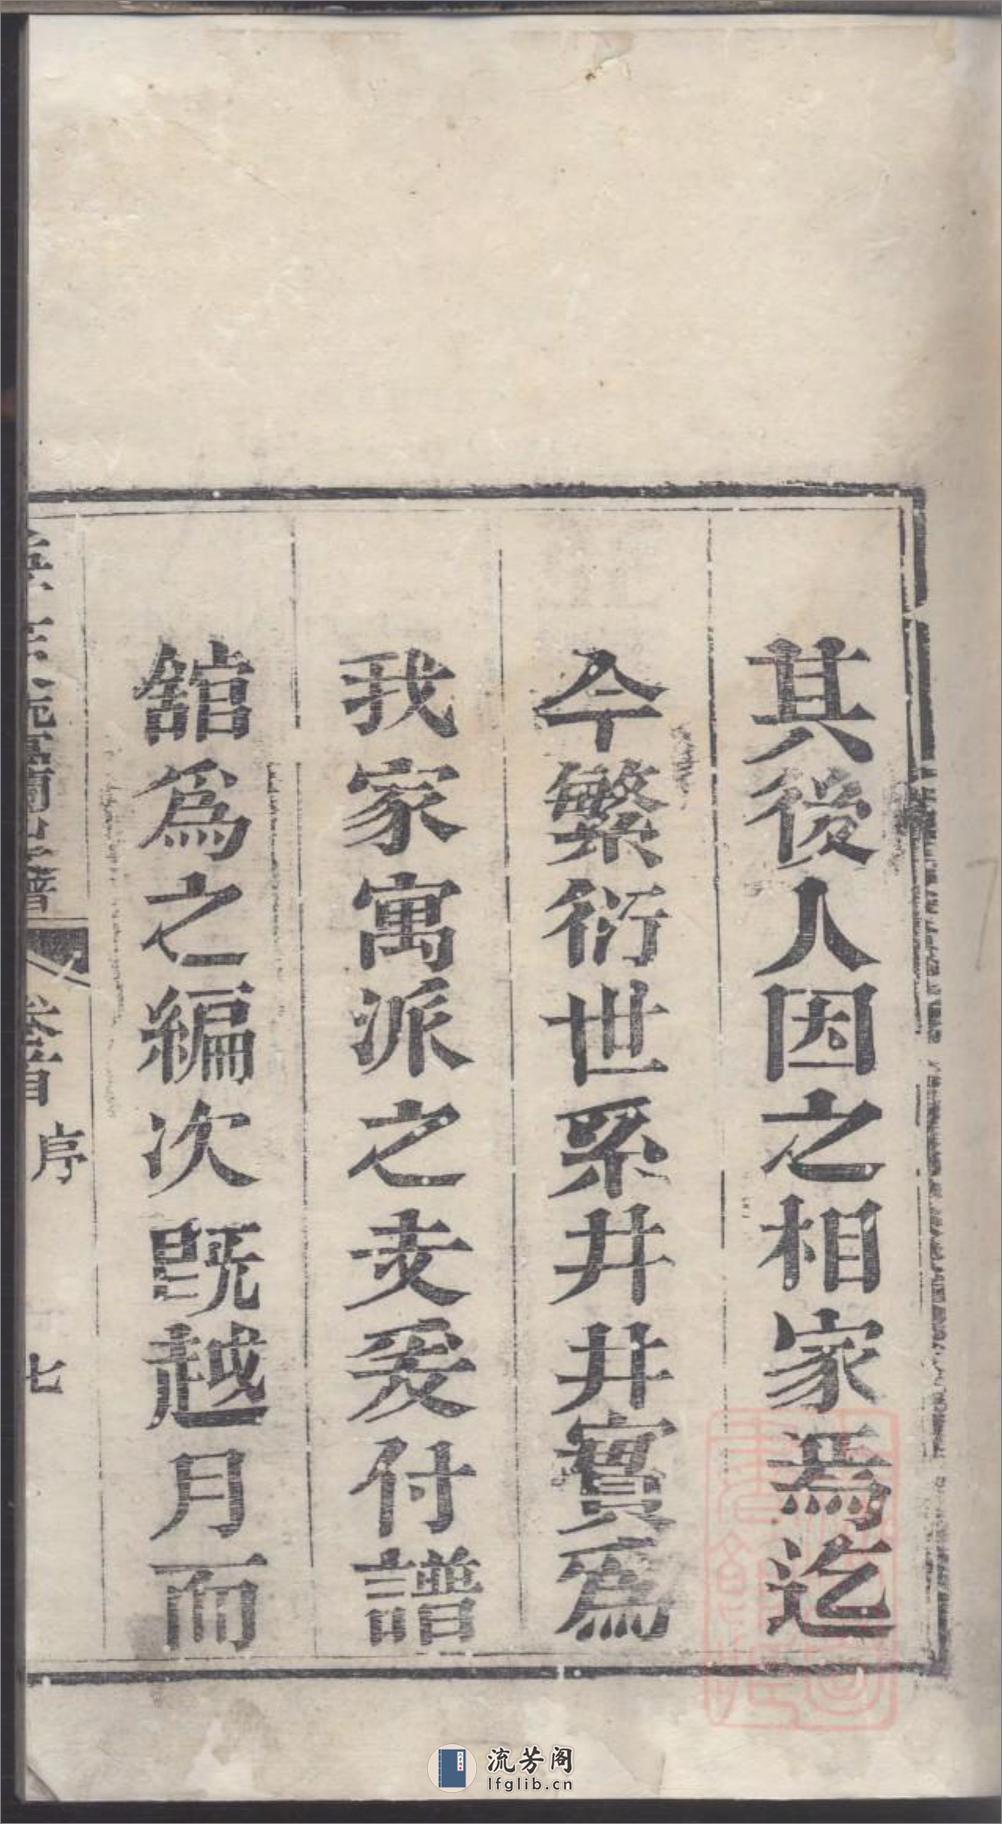 其後人因之相家焉迄
今繁衍世系井井實爲
我家寓派之犮爰付譜
舘爲之編次旣越月而
卷首
序
七
流芳阁
lfglib.cn